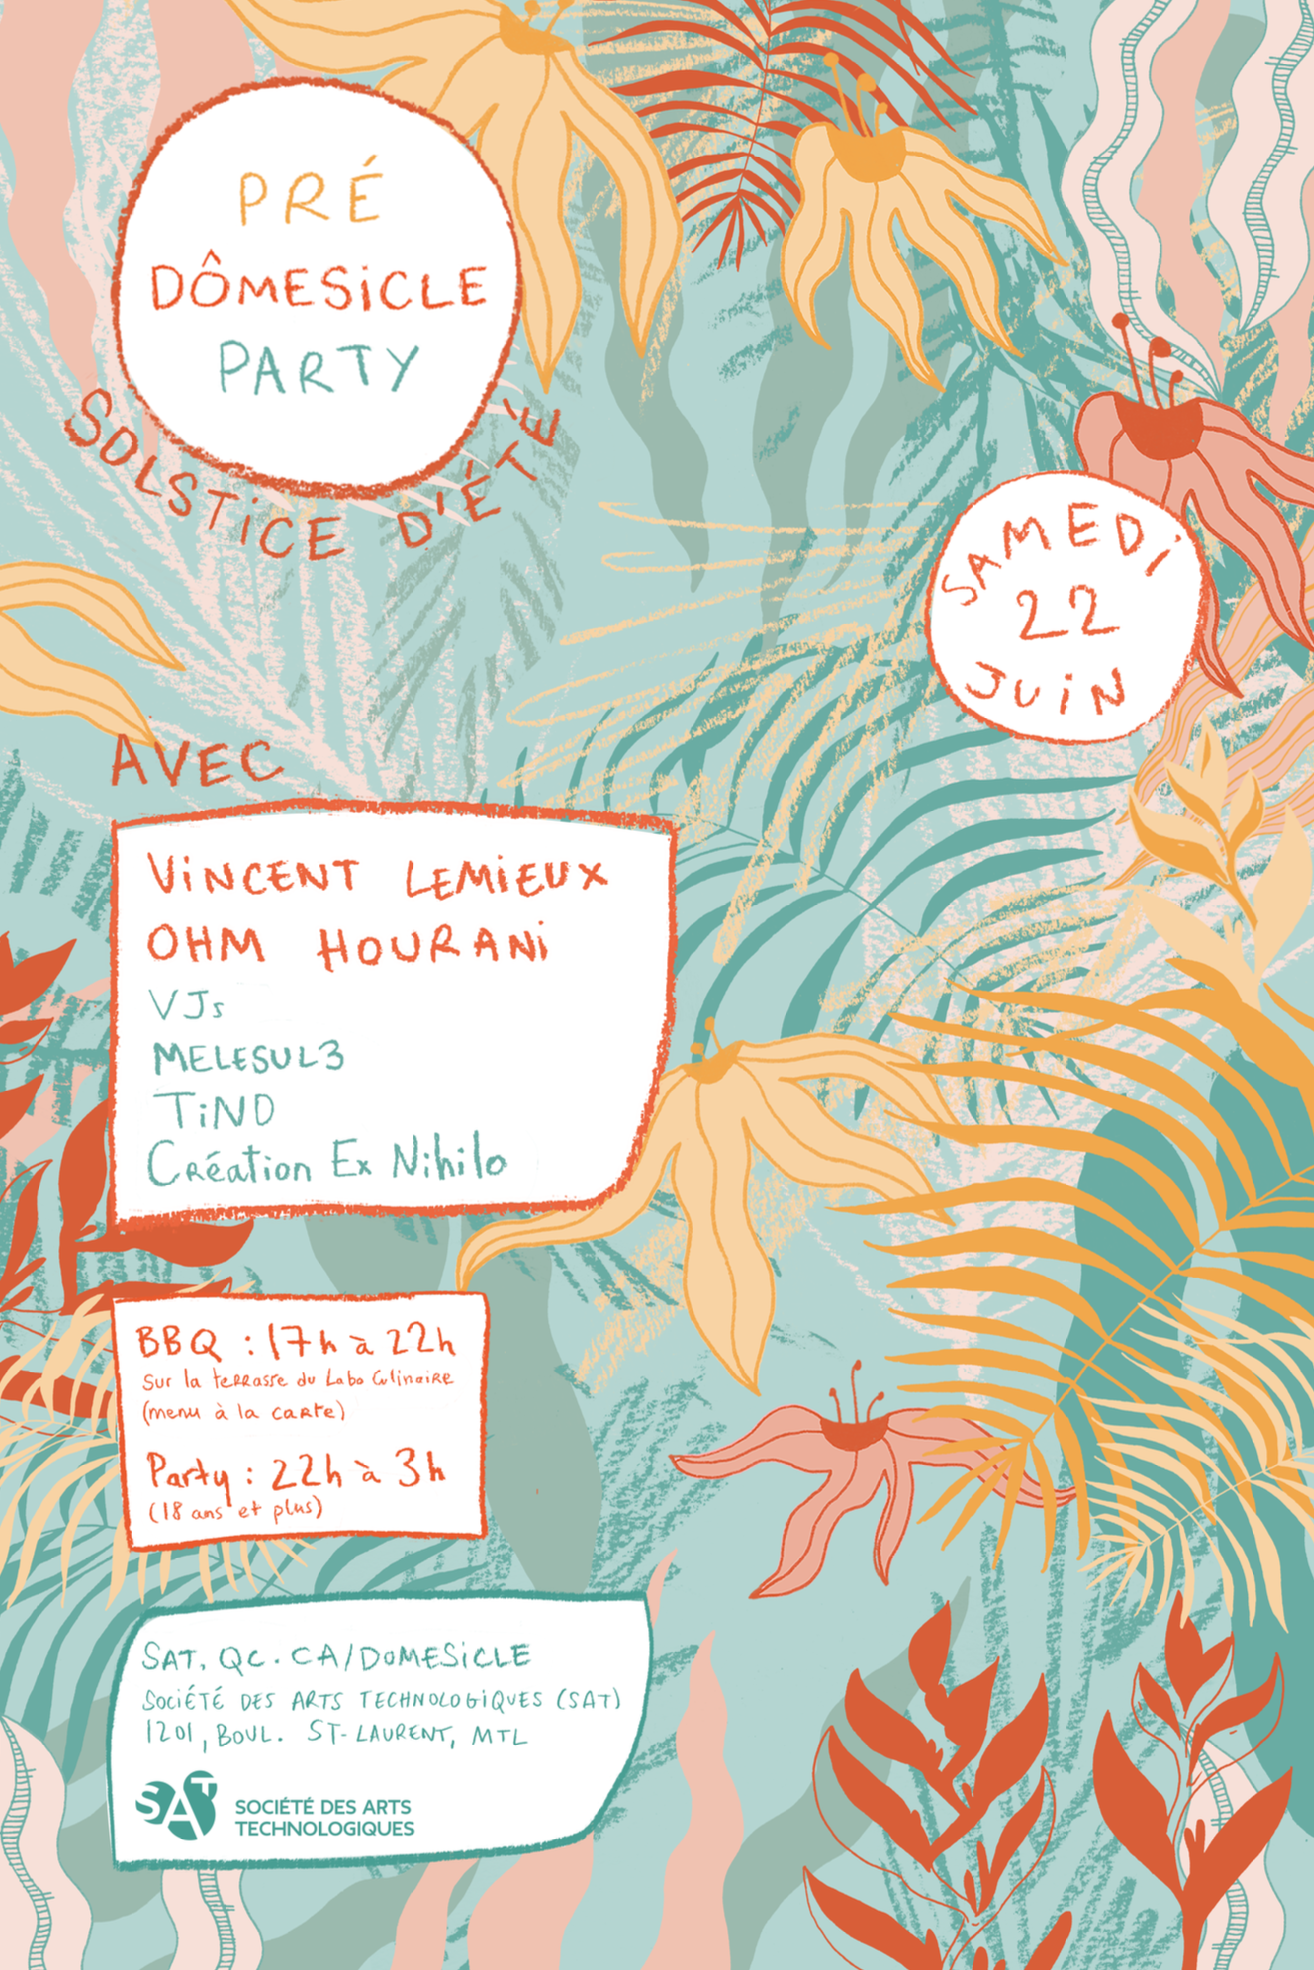 PRÉ
DÔMESiCLE
PARTY
SOLSTiCE D'ÉTÉ
SAMEDi
22
JUiN
AVEC
ViNCENT LEMiEUX
OHM HOURANi
VJs
MELESUL3
TiNO
Création Ex Nihilo
BBQ : 17h à 22h
Sur la terrasse du Labo Culinaire
(menu à la carte)
Party : 22h à 3h
(18 ans et plus)
SAT.QC.CA/DOMESiCLE
SOCiÉTÉ DES ARTS TECHNOLOGiQUES (SAT)
1201, BOUL. ST-LAURENT, MTL
SAT SOCIÉTÉ DES ARTS
TECHNOLOGIQUES